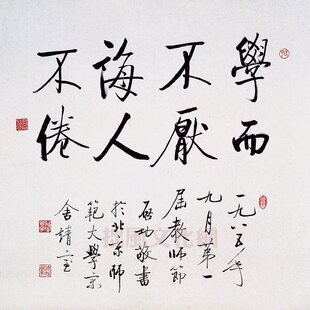 學而
不厭
誨人
不倦
一九八五年
九月第一
屆教師節
启功敬書
於北京師
範大學
舍